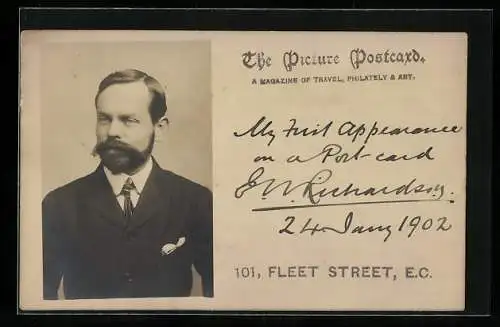 The Picture Postcard.
A MAGAZINE OF TRAVEL, PHILATELY & ART.
My First Appearance
on a Post-card
E.W. Richardson.
24 Jany 1902
101, FLEET STREET, E.C.